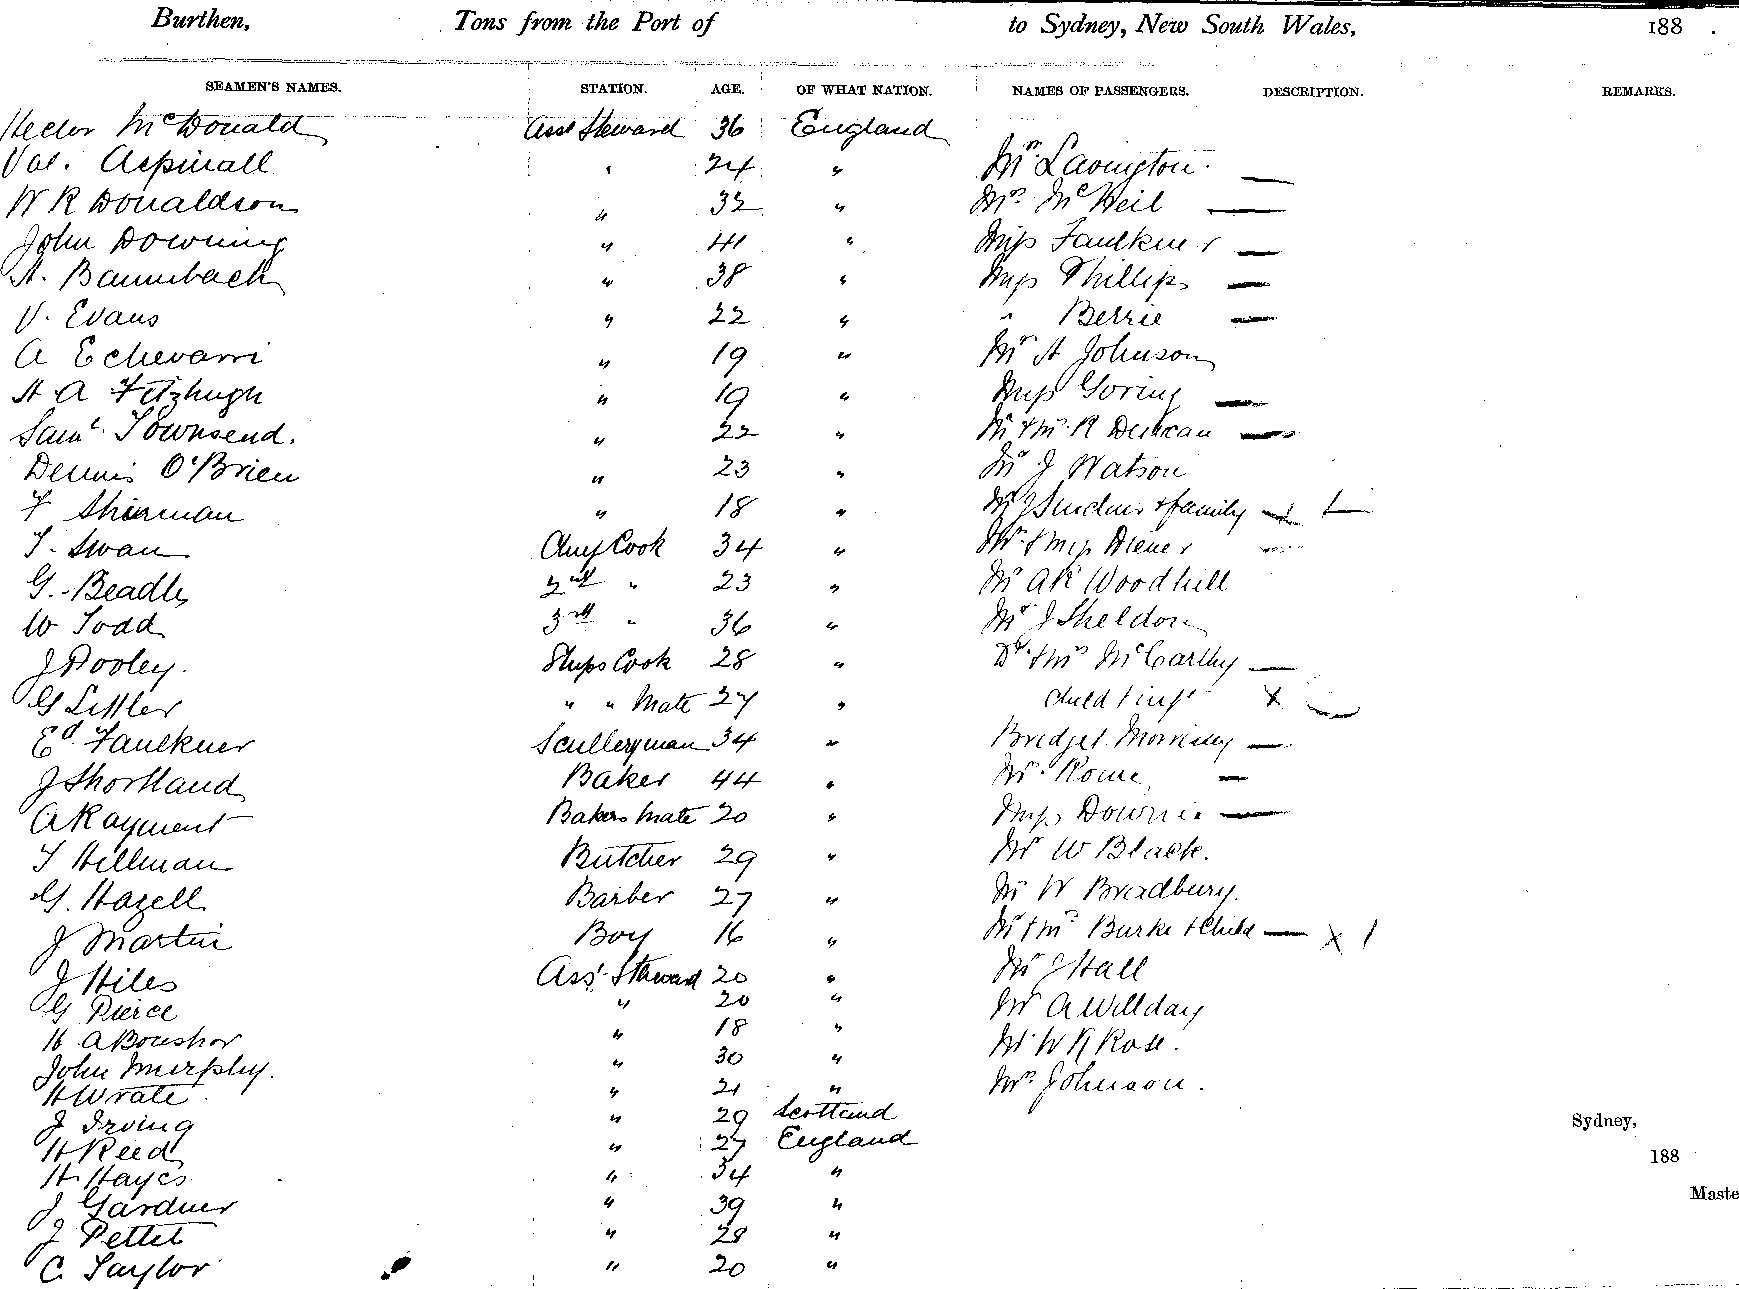 Burthen, Tons from the Port of to Sydney, New South Wales, 188 .
SEAMEN'S NAMES. STATION. AGE. OF WHAT NATION. NAMES OF PASSENGERS. DESCRIPTION. REMARKS.
Hector McDonald Asst Steward 36 England
Val. Aspinall " 24 " Mr Lavington. —
W R Donaldson " 32 " Mrs McNeil —
John Downing " 41 " Miss Faulkner —
A. Baumbach " 38 " Miss Phillips —
V. Evans " 22 " " Berrie —
A Echevarri " 19 " Mr A Johnson
H A Fitzhugh " 19 " Miss Goring —
Saml Townsend. " 22 " Mr & Mrs R Duncan —
Dennis O'Brien " 23 " Mr J Watson
F Shirman " 18 " Mr J & family —
T. Swan Chief Cook 34 " Mr & Miss Diener
G. Beadle 2nd " 23 " Mr A K Woodhill
W Todd 3rd " 36 " Mr J Sheldon
J Pooley. Ships Cook 28 " Dr & Mrs McCarthy —
G Littler " " Mate 27 " Child & inft X
Ed Faulkner Sculleryman 34 " Bridget Morrissey —
J Shortland Baker 44 " Mr Rome —
A Rayment Bakers Mate 20 " Miss Downie —
T Hillman Butcher 29 " Mr W Black.
G. Hazell Barber 27 " Mr W Bradbury.
J Martin Boy 16 " Mr & Mrs Burke & Child — X 1
J Hiles Asst Steward 20 " Mr J Hall
G Pierce " 20 " Mr A Willday
H A Boushor " 18 " Mr W R Rose.
John Murphy. " 30 " Mrs Johnson.
H Wrate " 21 "
J Irving " 29 Scotland Sydney,
H Reed " 27 England 188
H. Hayes " 34 "
J Gardner " 39 " Maste
J Pettet " 28 "
C. Taylor " 20 "